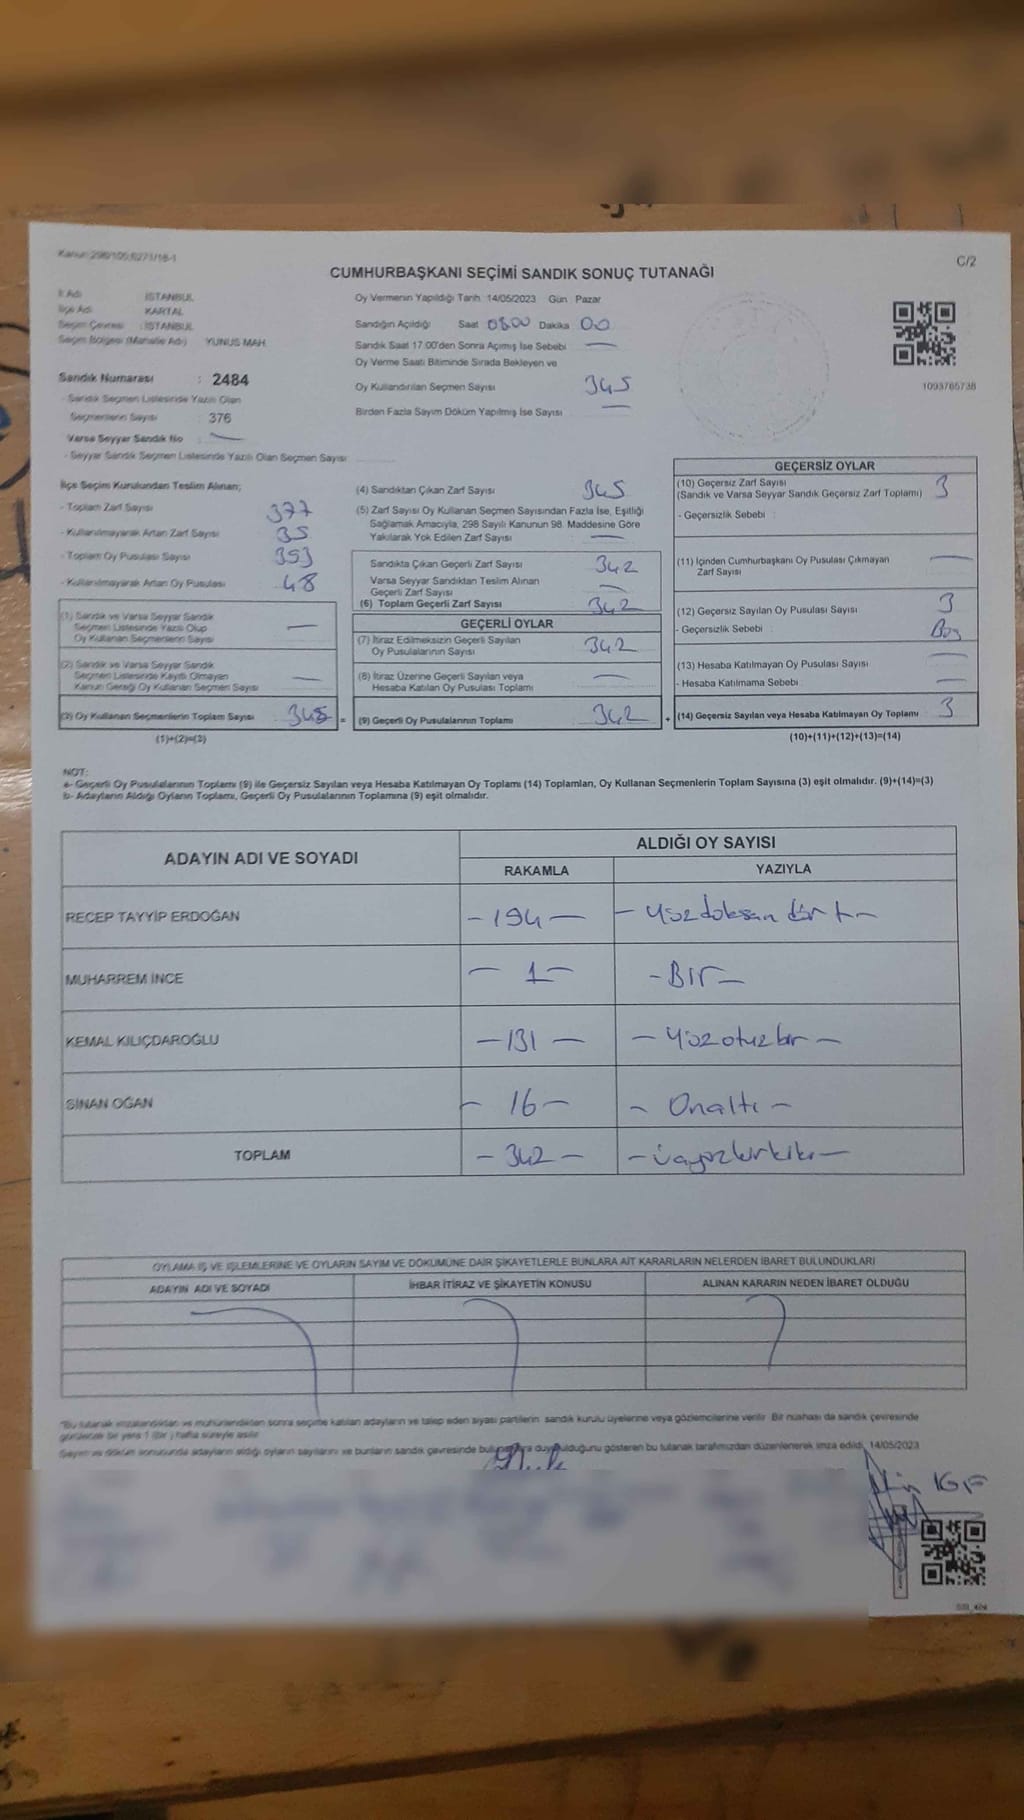 Kanun: 298/105,6271/18-1
C/2
CUMHURBAŞKANI SEÇİMİ SANDIK SONUÇ TUTANAĞI
İl Adı : İSTANBUL
İlçe Adı : KARTAL
Seçim Çevresi : İSTANBUL
Seçim Bölgesi (Mahalle Adı) YUNUS MAH.
Sandık Numarası : 2484
- Sandık Seçmen Listesinde Yazılı Olan
Seçmenlerin Sayısı : 376
Varsa Seyyar Sandık No : —
- Seyyar Sandık Seçmen Listesinde Yazılı Olan Seçmen Sayısı
Oy Vermenin Yapıldığı Tarih 14/05/2023 Gün Pazar
Sandığın Açıldığı Saat 08.00 Dakika 00
Sandık Saat 17:00'den Sonra Açımış İse Sebebi —
Oy Verme Saati Bitiminde Sırada Bekleyen ve
Oy Kullandırılan Seçmen Sayısı 345
Birden Fazla Sayım Döküm Yapılmış İse Sayısı —
1093765738
İlçe Seçim Kurulundan Teslim Alınan;
- Toplam Zarf Sayısı 377
- Kullanılmayarak Artan Zarf Sayısı 35
- Toplam Oy Pusulası Sayısı 353
- Kullanılmayarak Artan Oy Pusulası 48
(1) Sandık ve Varsa Seyyar Sandık
Seçmen Listesinde Yazılı Olup
Oy Kullanan Seçmenlerin Sayısı —
(2) Sandık ve Varsa Seyyar Sandık
Seçmen Listesinde Kayıtlı Olmayan
Kanun Gereği Oy Kullanan Seçmen Sayısı —
(3) Oy Kullanan Seçmenlerin Toplam Sayısı 345 =
(1)+(2)=(3)
(4) Sandıktan Çıkan Zarf Sayısı 345
(5) Zarf Sayısı Oy Kullanan Seçmen Sayısından Fazla İse, Eşitliği
Sağlamak Amacıyla, 298 Sayılı Kanunun 98. Maddesine Göre
Yakılarak Yok Edilen Zarf Sayısı —
Sandıkta Çıkan Geçerli Zarf Sayısı 342
Varsa Seyyar Sandıktan Teslim Alınan
Geçerli Zarf Sayısı —
(6) Toplam Geçerli Zarf Sayısı 342
GEÇERLİ OYLAR
(7) İtiraz Edilmeksizin Geçerli Sayılan
Oy Pusulalarının Sayısı 342
(8) İtiraz Üzerine Geçerli Sayılan veya
Hesaba Katılan Oy Pusulası Toplamı —
(9) Geçerli Oy Pusulalarının Toplamı 342 +
GEÇERSİZ OYLAR
(10) Geçersiz Zarf Sayısı
(Sandık ve Varsa Seyyar Sandık Geçersiz Zarf Toplamı) 3
- Geçersizlik Sebebi :
(11) İçinden Cumhurbaşkanı Oy Pusulası Çıkmayan
Zarf Sayısı —
(12) Geçersiz Sayılan Oy Pusulası Sayısı 3
- Geçersizlik Sebebi : Boş
(13) Hesaba Katılmayan Oy Pusulası Sayısı —
- Hesaba Katılmama Sebebi : —
(14) Geçersiz Sayılan veya Hesaba Katılmayan Oy Toplamı 3
(10)+(11)+(12)+(13)=(14)
NOT:
a- Geçerli Oy Pusulalarının Toplamı (9) ile Geçersiz Sayılan veya Hesaba Katılmayan Oy Toplamı (14) Toplamları, Oy Kullanan Seçmenlerin Toplam Sayısına (3) eşit olmalıdır. (9)+(14)=(3)
b- Adayların Aldığı Oyların Toplamı, Geçerli Oy Pusulalarının Toplamına (9) eşit olmalıdır.
ADAYIN ADI VE SOYADI ALDIĞI OY SAYISI
RAKAMLA YAZIYLA
RECEP TAYYİP ERDOĞAN – 194 – – Yüzdoksan dört –
MUHARREM İNCE – 1 – – Bir –
KEMAL KILIÇDAROĞLU – 131 – – Yüzotuzbir –
SİNAN OĞAN – 16 – – Onaltı –
TOPLAM – 342 – – üçyüzkırkiki –
OYLAMA İŞ VE İŞLEMLERİNE VE OYLARIN SAYIM VE DÖKÜMÜNE DAİR ŞİKAYETLERLE BUNLARA AİT KARARLARIN NELERDEN İBARET BULUNDUKLARI
ADAYIN ADI VE SOYADI İHBAR İTİRAZ VE ŞİKAYETİN KONUSU ALINAN KARARIN NEDEN İBARET OLDUĞU
*Bu tutanak imzalandıktan ve mühürlendikten sonra seçime katılan adayların ve talep eden siyasi partilerin sandık kurulu üyelerine veya gözlemcilerine verilir. Bir nüshası da sandık çevresinde
görülecek bir yere 1 (bir ) hafta süreyle asılır.
Sayım ve döküm sonucunda adayların aldığı oyların sayılarını ve bunların sandık çevresinde duyulduğunu gösteren bu tutanak tarafımızdan düzenlenerek imza edildi. 14/05/2023